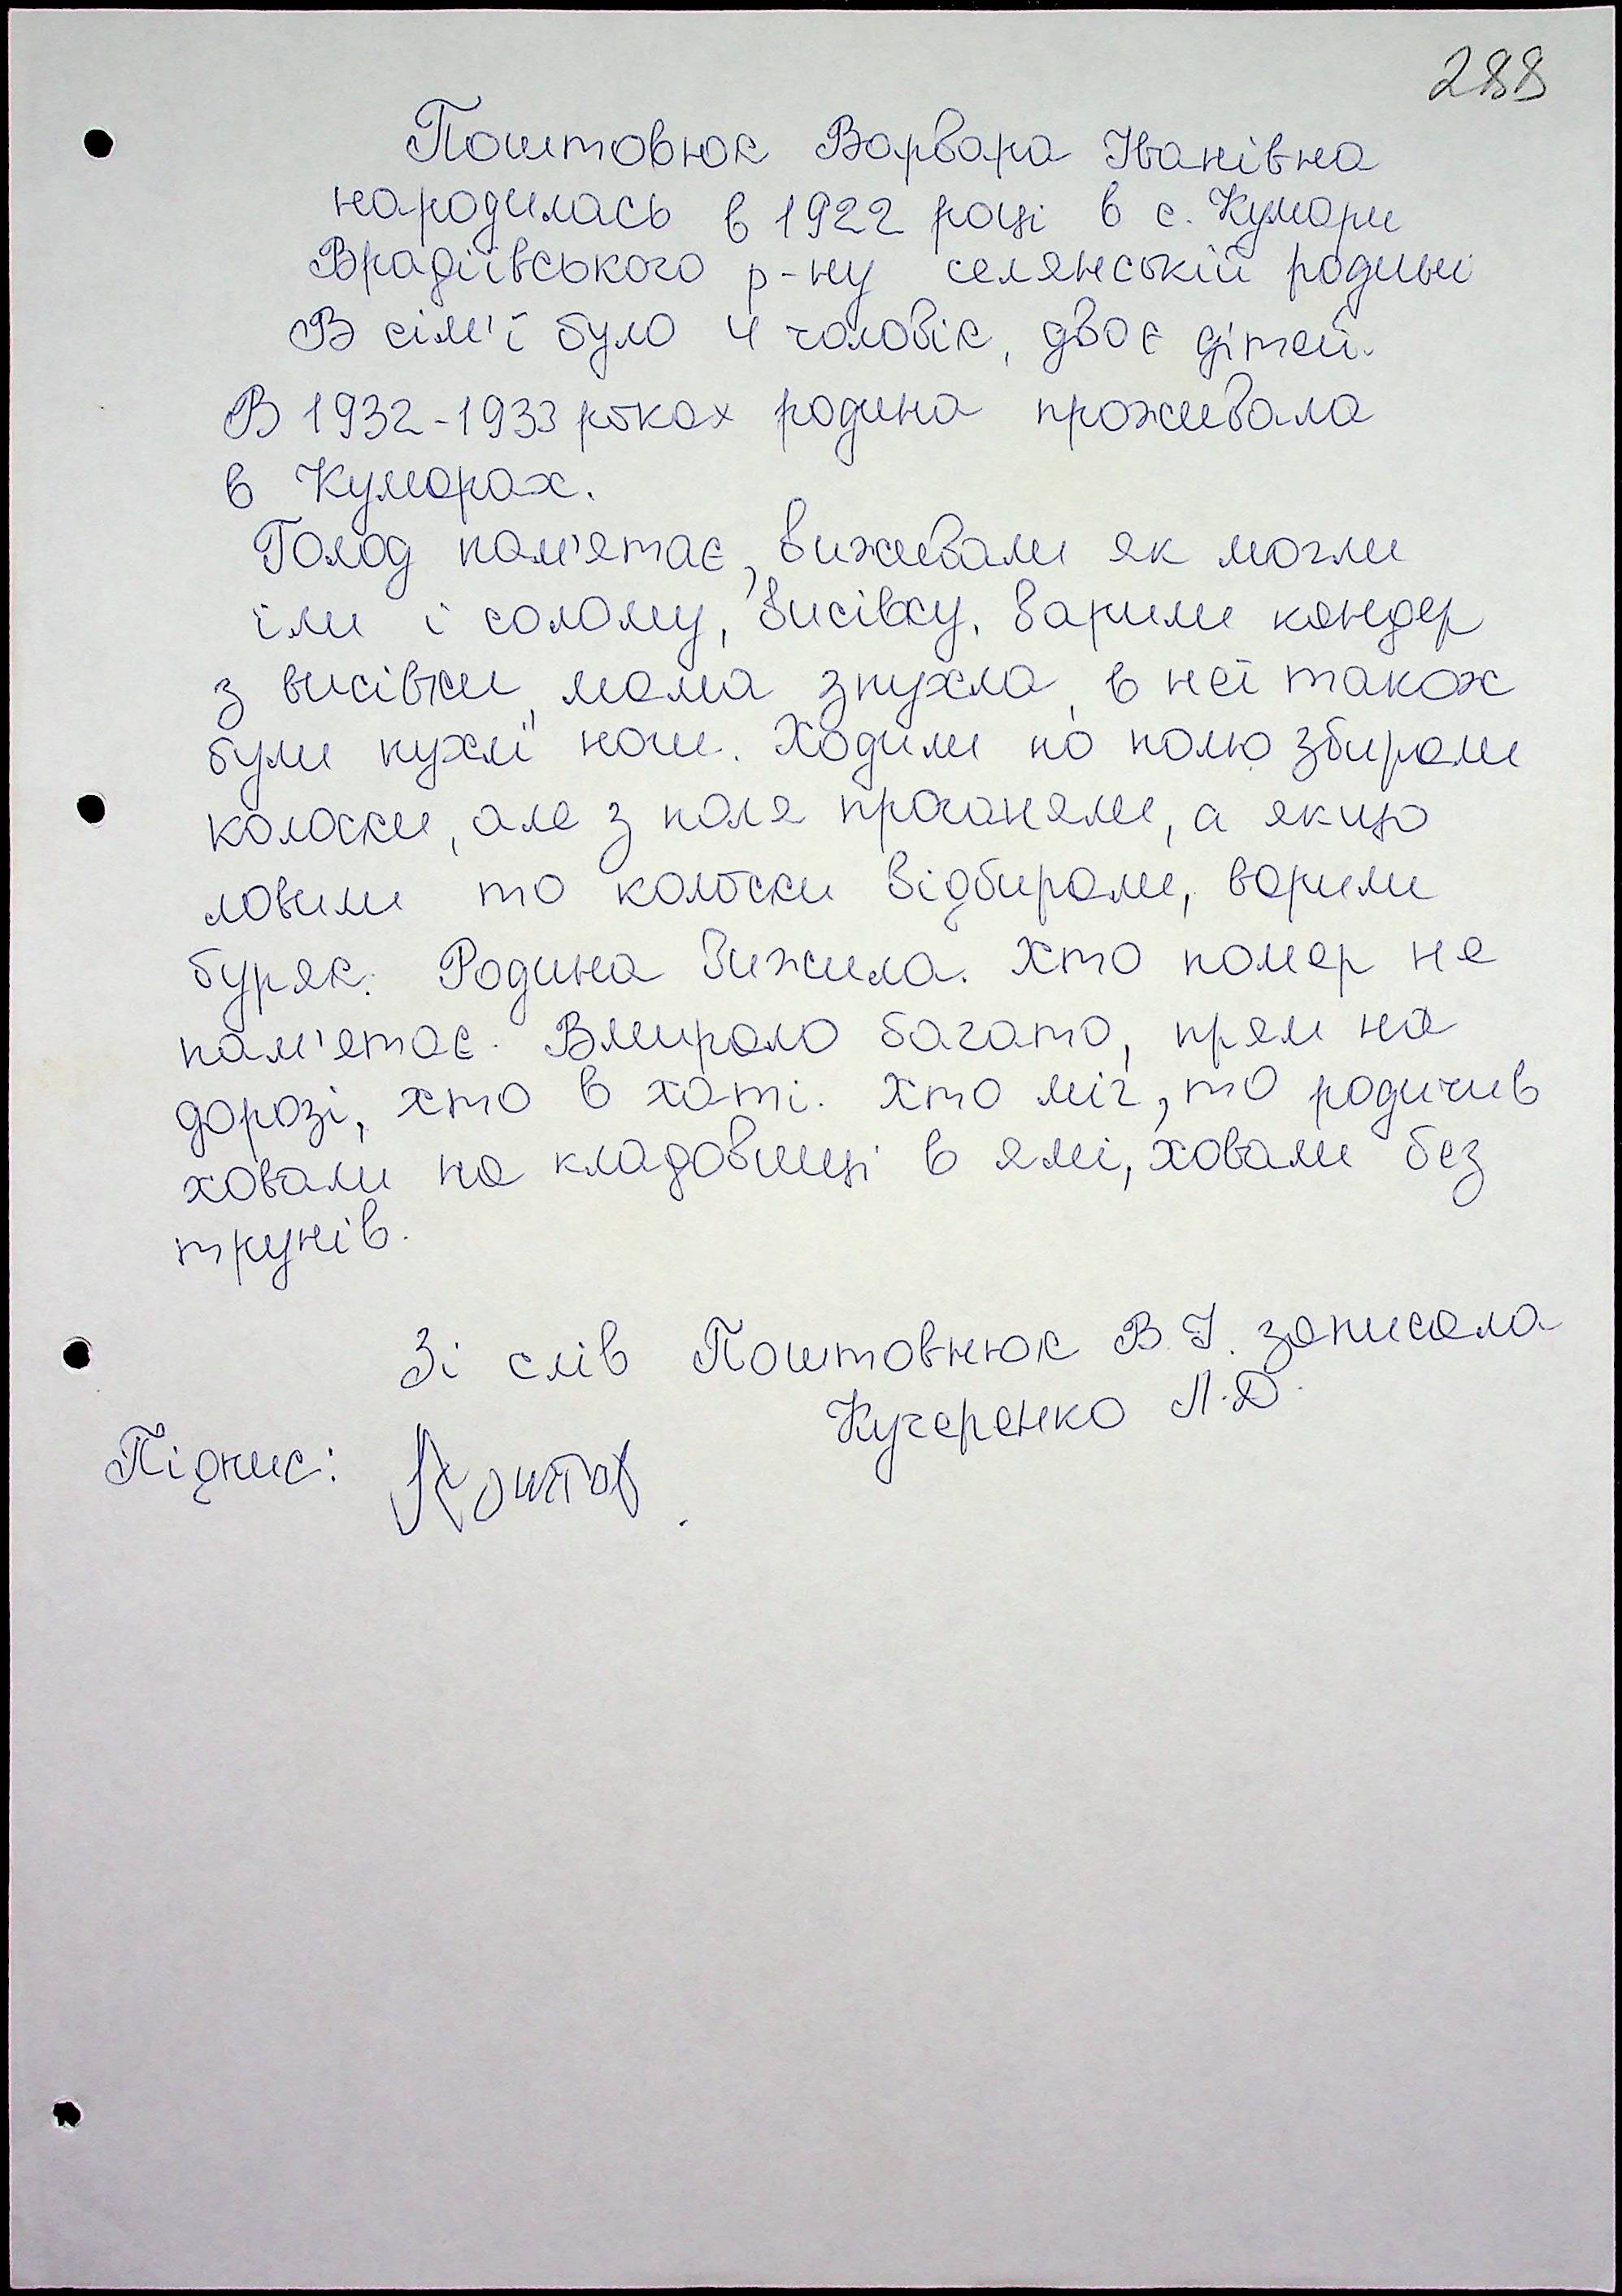 288
Поштовнюк Варвара Іванівна
народилась в 1922 році в с. Кумари
Врадіївського р-ну селянській родині
В сім'ї було 4 чоловік, двоє дітей.
В 1932-1933 роках родина проживала
в Кумарах.
Голод пам'ятає, виживали як могли
їли і солому, висівку, варили кандер
з висівки, мама зпухла, в неї також
були пухлі ноги. Ходили по полю збирали
колоски, але з поля проганяли, а якщо
ловили то колоски відбирали, варили
буряк. Родина вижила. Хто помер не
пам'ятає. Вмирало багато, прям на
дорозі, хто в хаті. Хто міг, то родичив
ховали на кладовищі в ямі, ховали без
трунів.
Зі слів Поштовнюк В.І. записала
Кучеренко Л.Д.
Підпис: Поштов